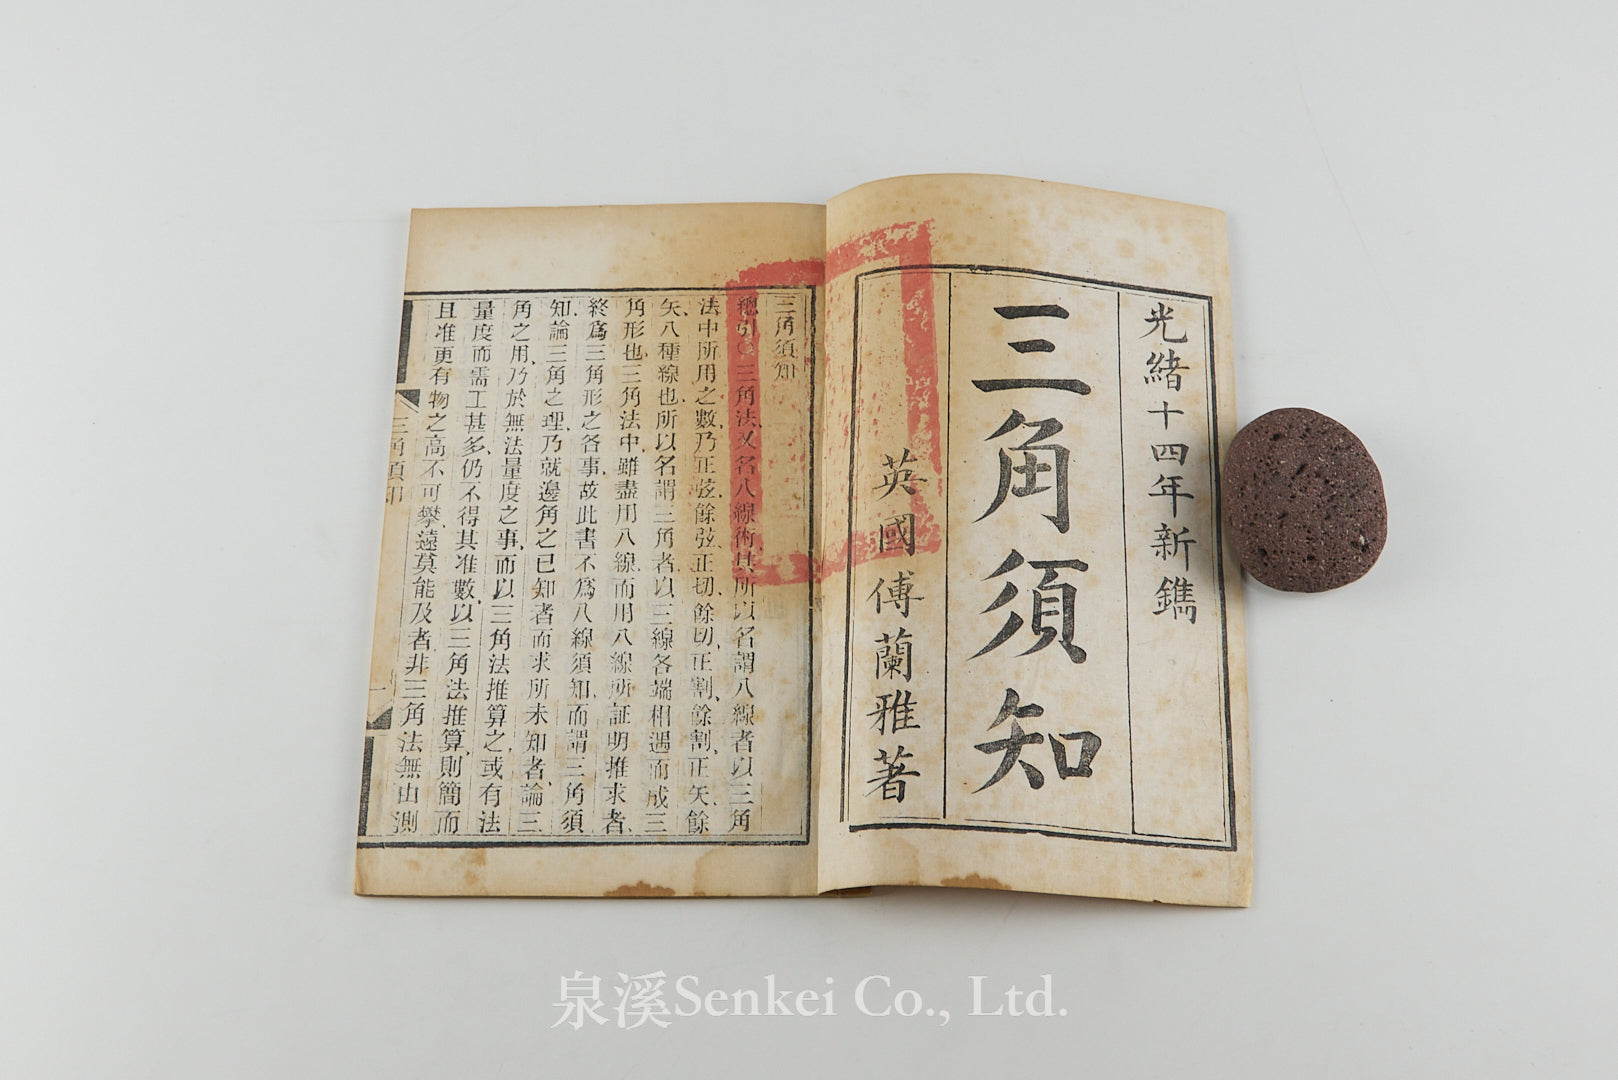 光緒十四年新鐫
三角須知
英國傅蘭雅著
三角須知
總引○三角法又名八線術其所以名謂八線者以三角
法中所用之數乃正弦餘弦正切餘切正割餘割正矢餘
矢八種線也所以名謂三角者以三線各端相遇而成三
角形也三角法中雖盡用八線而用八線所証明推求者
終爲三角形之各事故此書不爲八線須知而謂三角須
知論三角之理乃就邊角之已知者而求所未知者論三
角之用乃於無法量度之事而以三角法推算之或有法
量度而需工甚多仍不得其准數以三角法推算則簡而
且准更有物之高不可攀遠莫能及者非三角法無由測
三角須知
一
泉溪Senkei Co., Ltd.